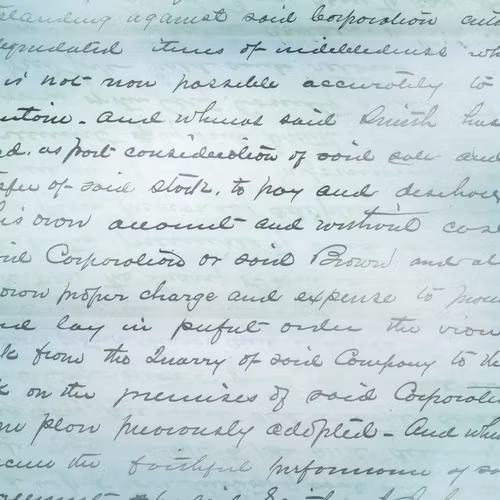 standing against said Corporation and
liquidated items of indebtedness wh
is not now possible accurately to
. And whereas said Smith has
d. as part consideration of said sale and
sfer of said stock, to pay and discha
his own account and without cos
id Corporation or said Brown and
own proper charge and expense to
nd lay in perfect order the
k from the Quarry of said Company to the
k on the premises of said Corporati
plan previously adopted - And whe
the faithful performance of
the said